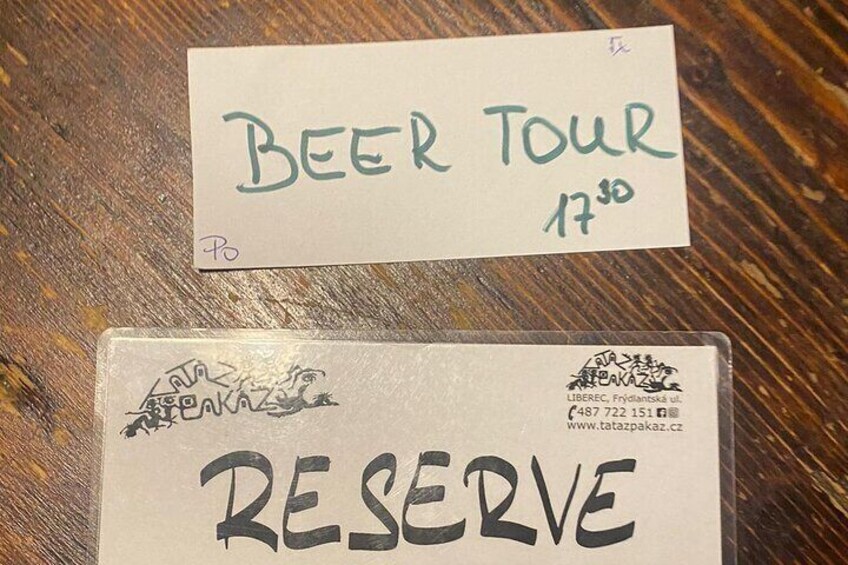 BEER TOUR
17 30
Po
TATAZ
PAKAZ
TATAZ
PAKAZ
LIBEREC, Frýdlantská ul.
487 722 151
www.tatazpakaz.cz
RESERVE